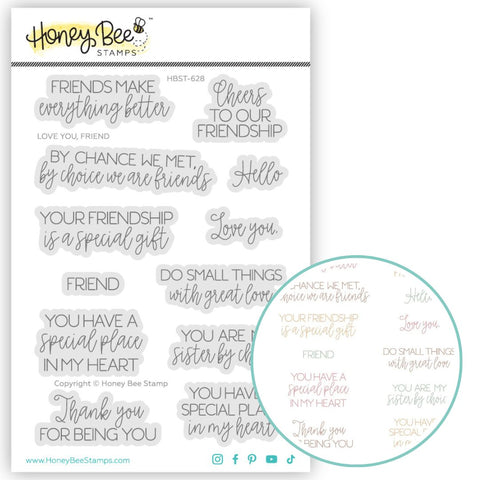 Honey Bee
STAMPS
™
HBST-628
FRIENDS MAKE
everything better
Cheers
TO OUR
FRIENDSHIP
LOVE YOU, FRIEND
BY CHANCE WE MET,
by choice we are friends
Hello
YOUR FRIENDSHIP
is a special gift
Love you,
FRIEND
DO SMALL THINGS
with great love
YOU HAVE A
special place
IN MY HEART
YOU ARE MY
sister by ch
Copyright © Honey Bee Stamp
Thank you
FOR BEING YOU
YOU HAVE
SPECIAL PLA
in my heart
www.HoneyBeeStamps.com
CHANCE WE MET,
choice we are friends
Hello,
YOUR FRIENDSHIP
is a special gift
Love you,
FRIEND
DO SMALL THINGS
with great love
YOU HAVE A
special place
IN MY HEART
YOU ARE MY
sister by choic
Thank you
R BEING YOU
YOU HAV
SPECIAL P
in my